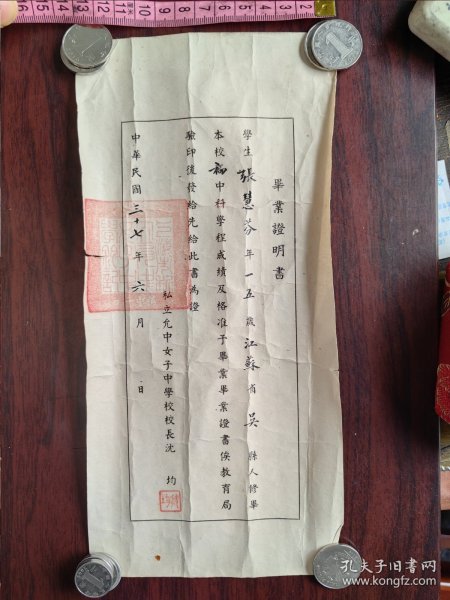 畢業證明書
學生張慧芬年一五歲江蘇省吳縣人修畢
本校初中科學程成績及格准予畢業畢業證書俟教育局
驗印後發給先給此書為證
私立允中女子中學校校長沈均
中華民國三十七年六月 日
孔夫子旧书网
www.kongfz.com